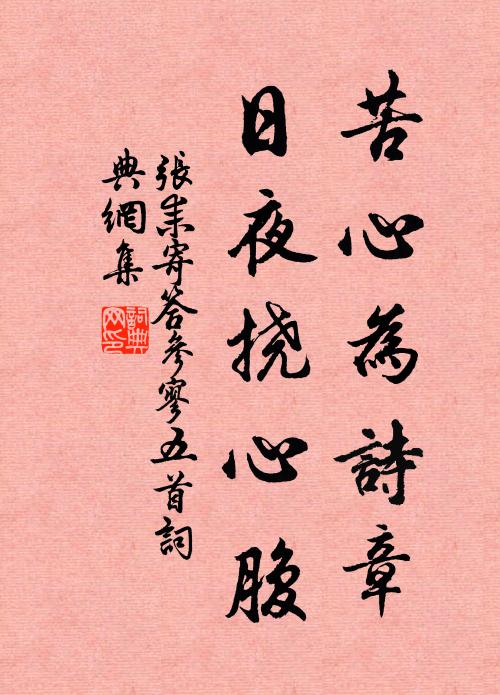 苦心為詩章
日夜挠心腹
張耒寄答參寥五首詞
典網集
詞典
网印